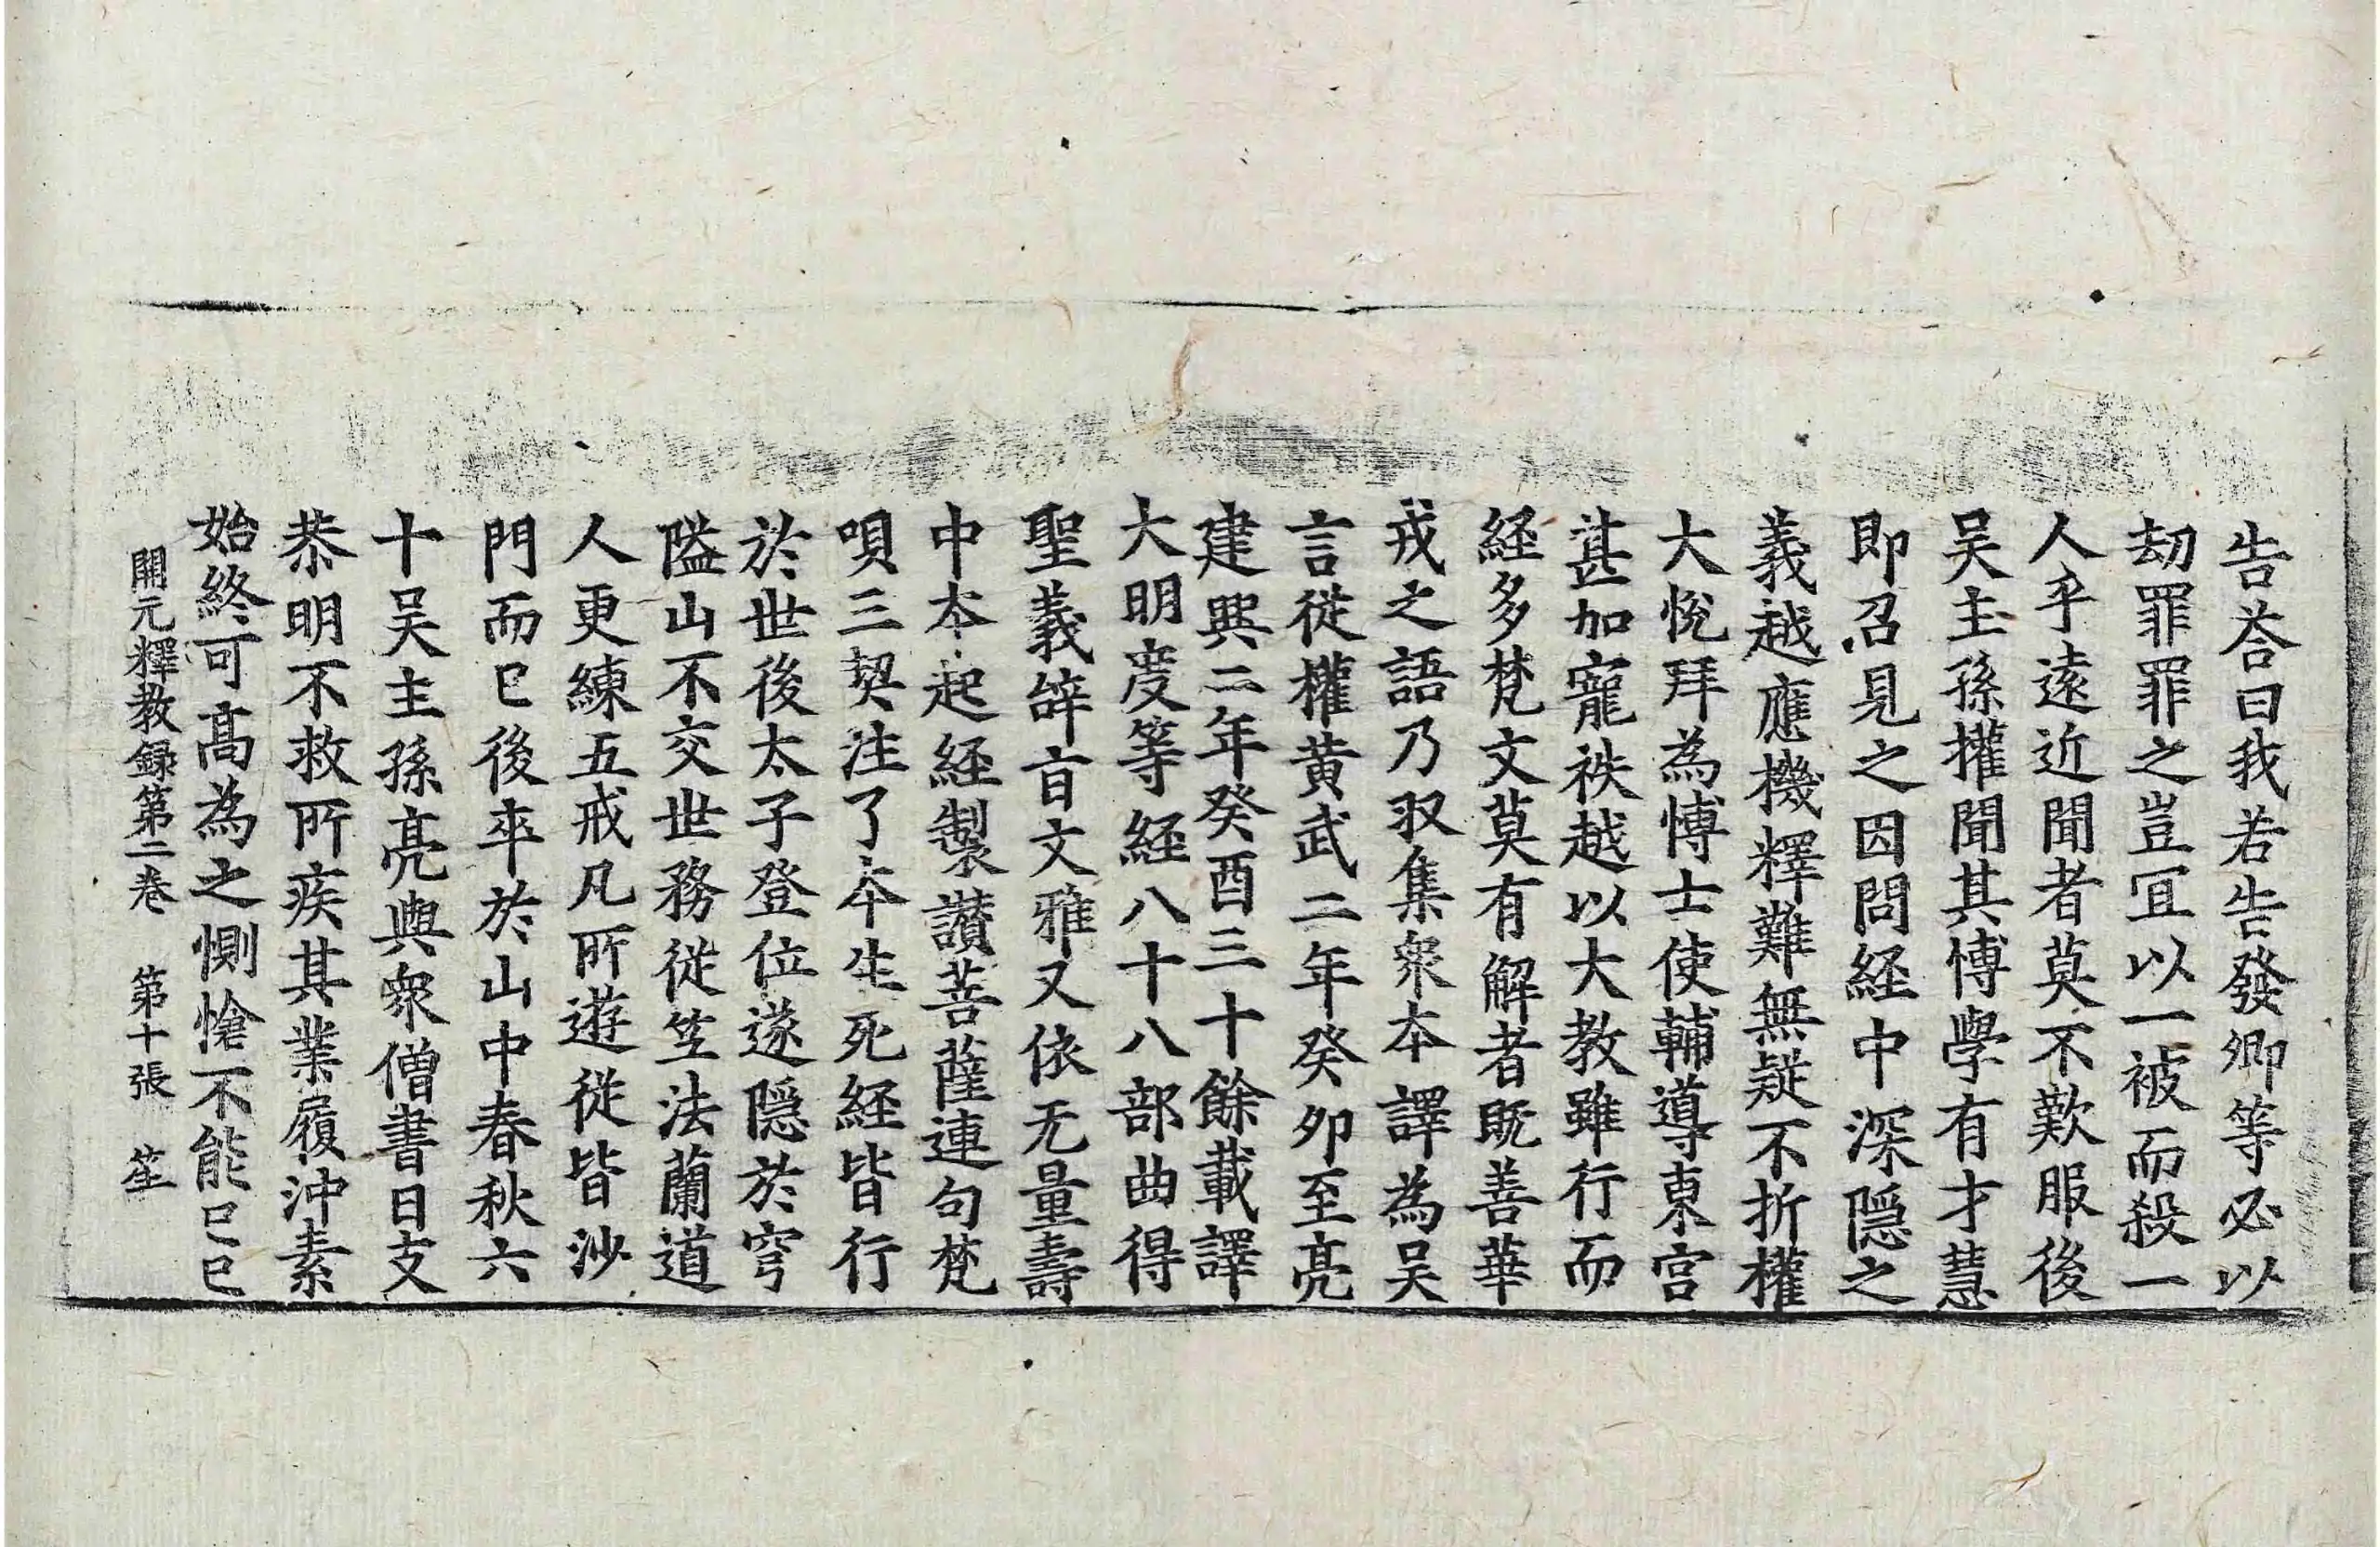 告荅曰我若告發卿等必以
劫罪罪之豈冝以一被而殺一
人乎遠近聞者莫不歎服後
吴主孫權聞其博學有才慧
即召見之因問経中深隠之
義越應機釋難無疑不折權
大悅拜為博士使輔導東宫
甚加寵袟越以大教雖行而
経多梵文莫有解者既善華
戎之語乃収集衆本譯為吴
言従權黄武二年癸夘至亮
建興二年癸酉三十餘載譯
大明度等経八十八部曲得
聖義辝㫖文雅又依无量壽
中本起経製讃菩薩連句梵
唄三契注了本生死経皆行
於世後太子登位遂隠於穹
隘山不交世務従笁法蘭道
人更練五戒凡所遊従皆沙
門而已後卒於山中春秋六
十吴主孫亮與衆僧書日支
恭明不救所疾其業履沖素
始終可髙為之惻愴不能已已
開元釋教録第二卷 第十張 笙